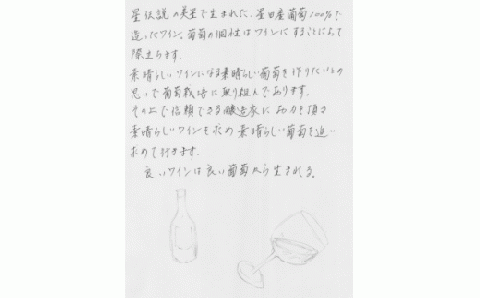 星伝説の美星で生まれた、星田産葡萄100%で
造ったワイン。葡萄の個性はワインにすることによって
際立ちます。
素晴らしいワインになる素晴らしい葡萄を作りたいとの
思いで葡萄栽培に取り組んであります。
その上で信頼できる醸造家に協力を頂き
素晴らしいワインもための素晴らしい葡萄を追い
求めて行きます。
良いワインは良い葡萄から生まれる。